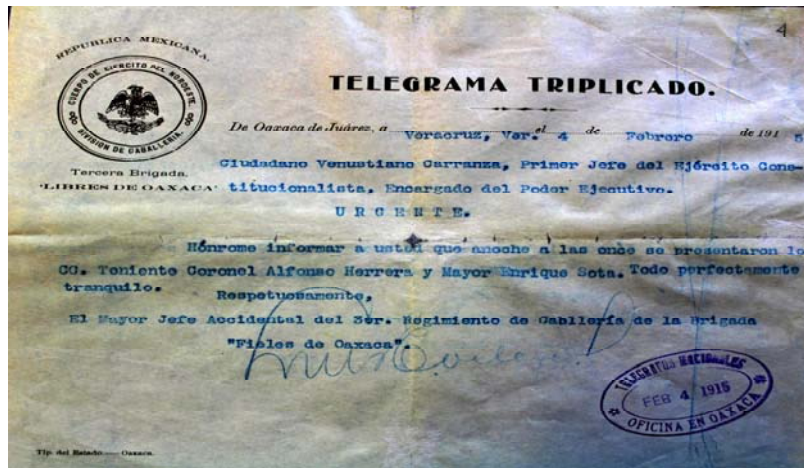 4
REPUBLICA MEXICANA.
CUERPO DE EJERCITO DEL NOROESTE.
DIVISION DE CABALLERIA.
Tercera Brigada.
"LIBRES DE OAXACA"
TELEGRAMA TRIPLICADO.
De Oaxaca de Juárez, a Veracruz, Ver. el 4 de Febrero de 1915
Ciudadano Venustiano Carranza, Primer Jefe del Ejército Cons-
titucionalista, Encargado del Poder Ejecutivo.
U R G E N T E.
Hónrome informar a usted que anoche a las once se presentaron lo
CC. Teniente Coronel Alfonso Herrera y Mayor Enrique Sota. Todo perfectamente
tranquilo.
Respetuosamente,
El Mayor Jefe Accidental del 3er. Regimiento de Gabllería de la Brigada
"Fieles de Oaxaca".
TELEGRAFOS NACIONALES
FEB 4 1915
OFICINA EN OAXACA
Tip. del Estado.—Oaxaca.